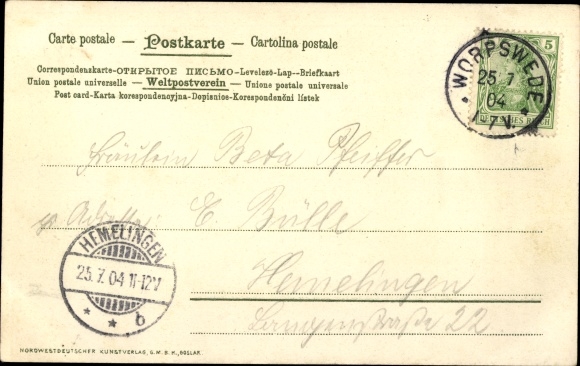 Carte postale — Postkarte — Cartolina postale
Correspondenskarte-ОТКРЫТОЕ ПИСЬМО-Levelező-Lap--Briefkaart
Union postale universelle — Weltpostverein — Unione postale universale
Post card-Karta korespondencyjna-Dopisnice-Korespondenční lístek
5
DEUTSCHES REICH
* WORPSWEDE *
25 7
04
7 V.
Fräulein Beta Pfeiffer
E. Bülle
HEMELINGEN
25.7.04 11-12V
* * b
Hemelingen
Langenstraße 22
NORDWESTDEUTSCHER KUNSTVERLAG, G.M.B.H., GOSLAR.